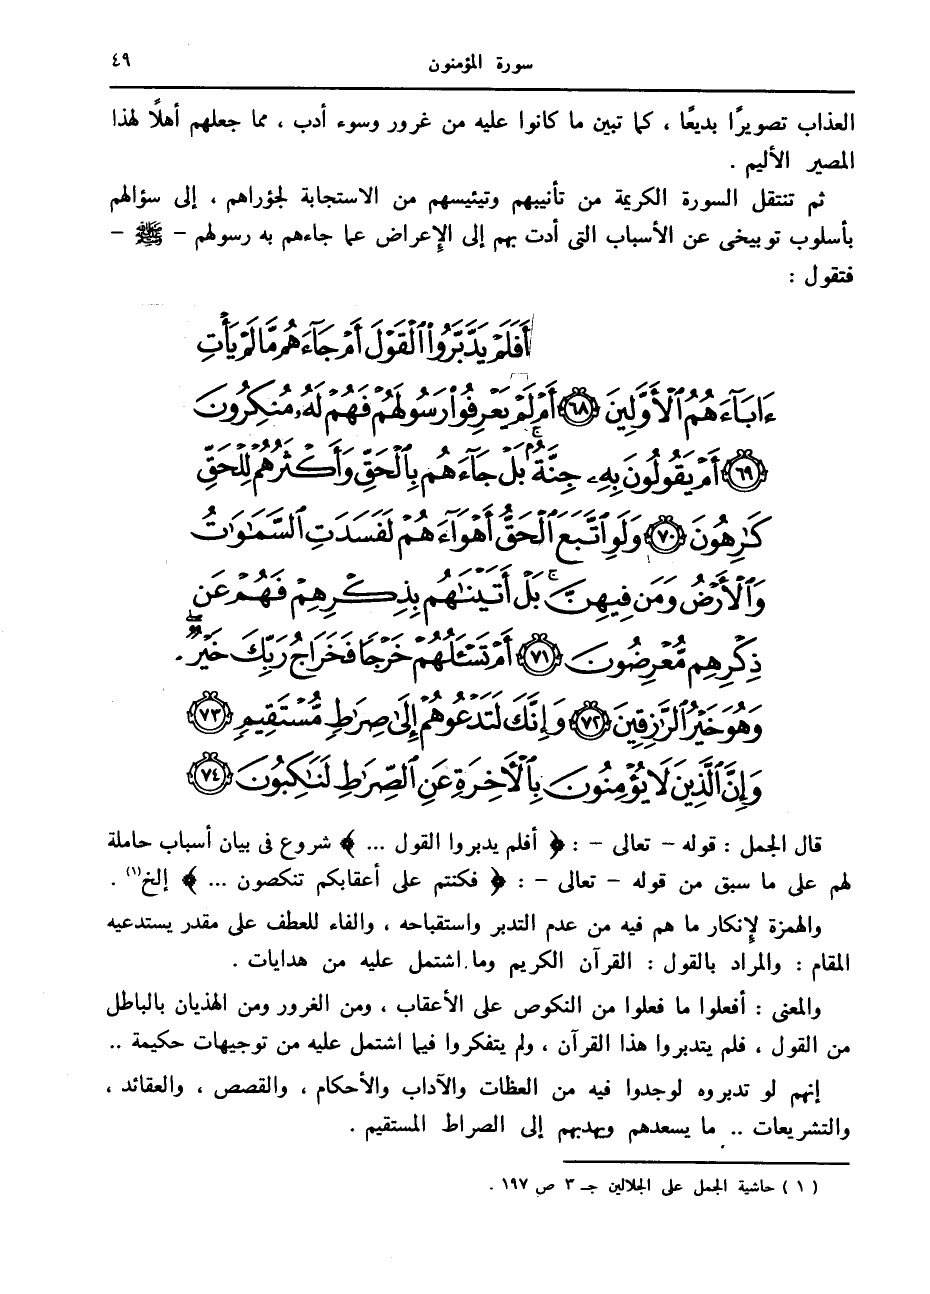 سورة المؤمنون ٤٩
العذاب تصويرًا بديعًا ، كما تبين ما كانوا عليه من غرور وسوء أدب ، مما جعلهم أهلًا لهذا
المصير الأليم .
ثم تنتقل السورة الكريمة من تأنيبهم وتيئيسهم من الاستجابة لجؤراهم ، إلى سؤالهم
بأسلوب توبيخى عن الأسباب التى أدت بهم إلى الإعراض عما جاءهم به رسولهم - ﷺ -
فتقول :
أَفَلَمْ يَدَّبَّرُوا۟ ٱلْقَوْلَ أَمْ جَآءَهُم مَّا لَمْ يَأْتِ
ءَابَآءَهُمُ ٱلْأَوَّلِينَ ٦٨ أَمْ لَمْ يَعْرِفُوا۟ رَسُولَهُمْ فَهُمْ لَهُۥ مُنكِرُونَ
٦٩ أَمْ يَقُولُونَ بِهِۦ جِنَّةٌۢ ۚ بَلْ جَآءَهُم بِٱلْحَقِّ وَأَكْثَرُهُمْ لِلْحَقِّ
كَـٰرِهُونَ ٧٠ وَلَوِ ٱتَّبَعَ ٱلْحَقُّ أَهْوَآءَهُمْ لَفَسَدَتِ ٱلسَّمَـٰوَٰتُ
وَٱلْأَرْضُ وَمَن فِيهِنَّ ۚ بَلْ أَتَيْنَـٰهُم بِذِكْرِهِمْ فَهُمْ عَن
ذِكْرِهِم مُّعْرِضُونَ ٧١ أَمْ تَسْـَٔلُهُمْ خَرْجًا فَخَرَاجُ رَبِّكَ خَيْرٌ ۖ
وَهُوَ خَيْرُ ٱلرَّٰزِقِينَ ٧٢ وَإِنَّكَ لَتَدْعُوهُمْ إِلَىٰ صِرَٰطٍ مُّسْتَقِيمٍ ٧٣
وَإِنَّ ٱلَّذِينَ لَا يُؤْمِنُونَ بِٱلْـَٔاخِرَةِ عَنِ ٱلصِّرَٰطِ لَنَـٰكِبُونَ ٧٤
قال الجمل : قوله - تعالى - : ﴿ أفلم يدبروا القول ... ﴾ شروع فى بيان أسباب حاملة
لهم على ما سبق من قوله - تعالى - : ﴿ فكنتم على أعقابكم تنكصون ... ﴾ إلخ(١) .
والهمزة لإنكار ما هم فيه من عدم التدبر واستقباحه ، والفاء للعطف على مقدر يستدعيه
المقام : والمراد بالقول : القرآن الكريم وما اشتمل عليه من هدايات .
والمعنى : أفعلوا ما فعلوا من النكوص على الأعقاب ، ومن الغرور ومن الهذيان بالباطل
من القول ، فلم يتدبروا هذا القرآن ، ولم يتفكروا فيما اشتمل عليه من توجيهات حكيمة ..
إنهم لو تدبروه لوجدوا فيه من العظات والآداب والأحكام ، والقصص ، والعقائد ،
والتشريعات .. ما يسعدهم ويهديهم إلى الصراط المستقيم .
( ١ ) حاشية الجمل على الجلالين جـ ٣ ص ١٩٧ .